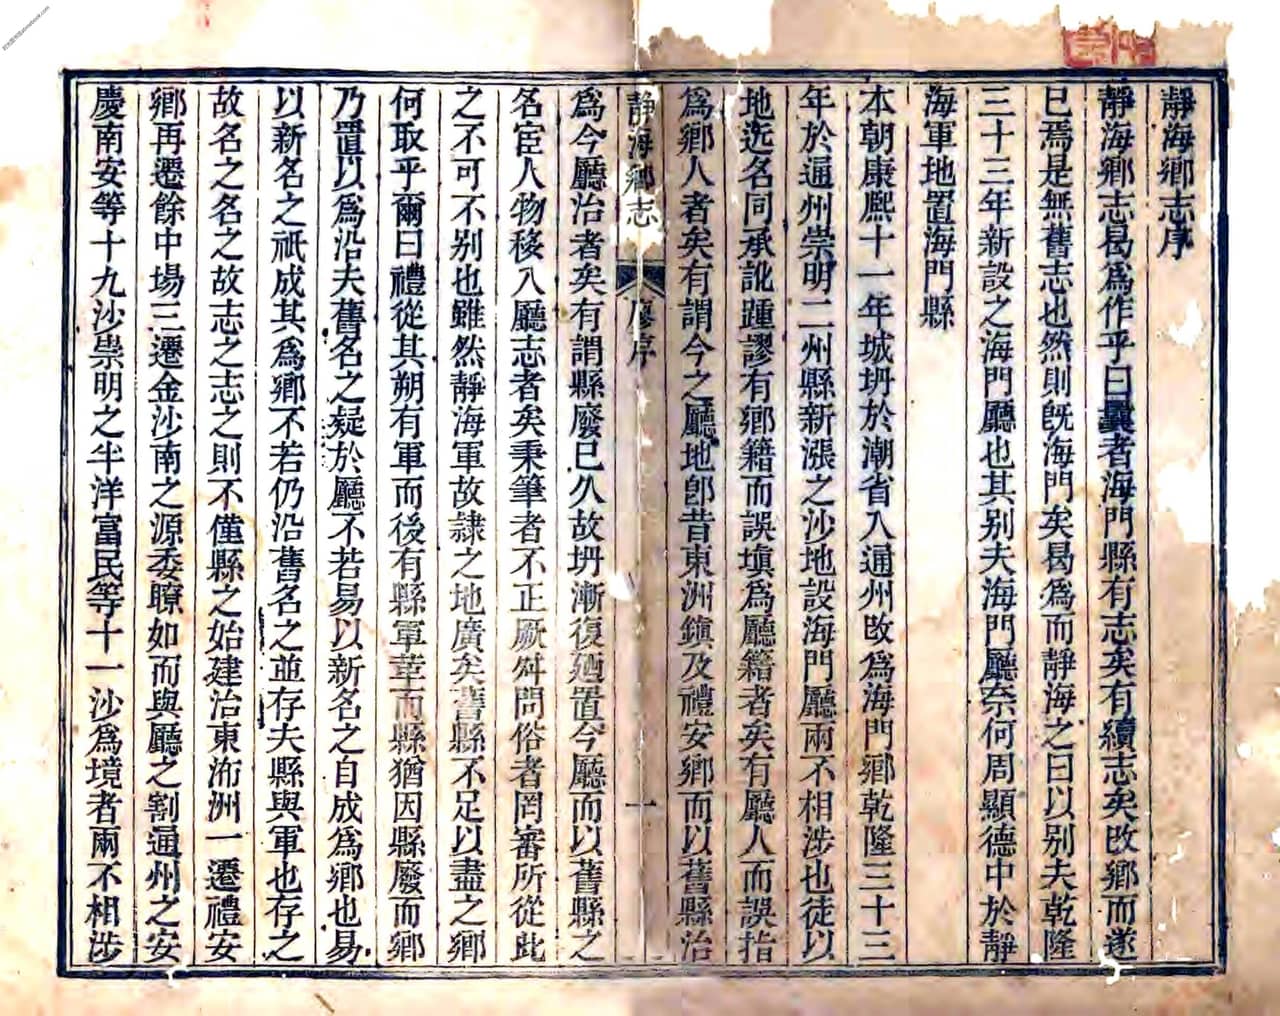 靜海鄉志序
靜海鄉志曷爲作乎曰曩者海門縣有志矣有續志矣改鄉而遂
已焉是無舊志也然則旣海門矣曷爲而靜海之曰以别夫乾隆
三十三年新設之海門廳也其别夫海門廳奈何周顯德中於靜
海軍地置海門縣
本朝康熙十一年城坍於潮省入通州改爲海門鄉乾隆三十三
年於通州崇明二州縣新漲之沙地設海門廳兩不相涉也徒以
地迄名同承訛踵謬有鄉籍而誤塡爲廳籍者矣有廳人而誤指
爲鄉人者矣有謂今之廳地卽昔東洲鎮及禮安鄉而以舊縣治
靜海鄉志 廖序 一
爲今廳治者矣有謂縣廢已久故坍漸復廼置今廳而以舊縣之
名宦人物移入廳志者矣秉筆者不正厥舛問俗者罔審所從此
之不可不别也雖然靜海軍故隷之地廣矣舊縣不足以盡之鄉
何取乎爾曰禮從其朔有軍而後有縣軍葦而縣猶因縣廢而鄉
乃置以爲沿夫舊名之疑於廳不若易以新名之自成爲鄉也易
以新名之祇成其爲鄉不若仍沿舊名之並存夫縣與軍也存之
故名之名之故志之志之則不僅縣之始建治東洊洲一遷禮安
鄉再遷餘中場三遷金沙南之源委瞭如而與廳之割通州之安
慶南安等十九沙崇明之半洋富民等十一沙爲境者兩不相涉